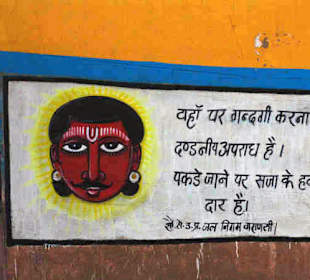 यहाँ पर गन्दगी करना
दण्डनीय अपराध है।
पकडे जाने पर सजा के हक
दार है।
सौ. से. उ. प्र. जल निगम वाराणसी।